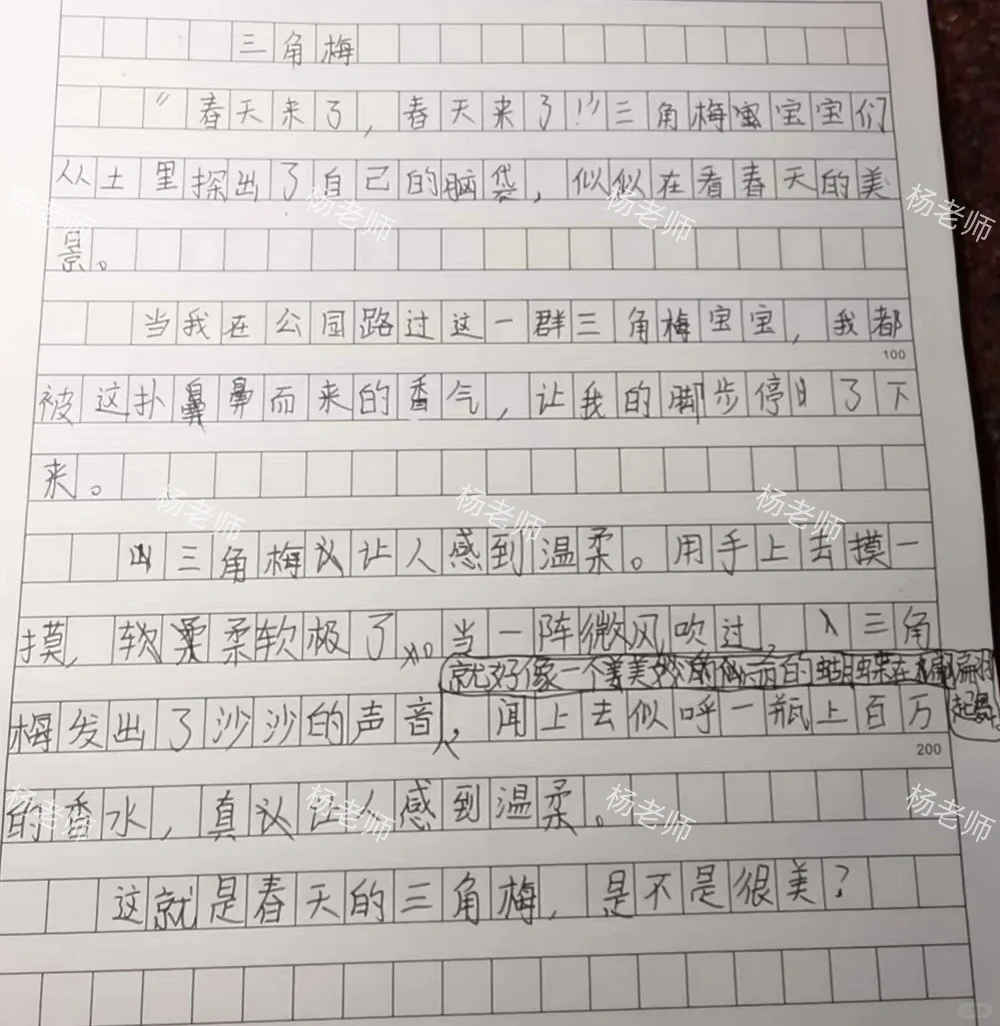 三角梅
“春天来了，春天来了！”三角梅宝宝们
从土里探出了自己的脑袋，似似在看春天的美
景。
当我在公园路过这一群三角梅宝宝，我都
100
被这扑鼻而来的香气，让我的脚步停了下
来。
三角梅让人感到温柔。用手上去摸一
摸，软柔柔软极了。当一阵微风吹过，三角
就好像一个美妙的的蝴蝶在翩翩
起舞。
梅发出了沙沙的声音，闻上去似呼一瓶上百万
200
的香水，真让人感到温柔。
这就是春天的三角梅，是不是很美？
杨老师
杨老师
杨老师
杨老师
杨老师
杨老师
杨老师
杨老师
杨老师
杨老师
杨老师